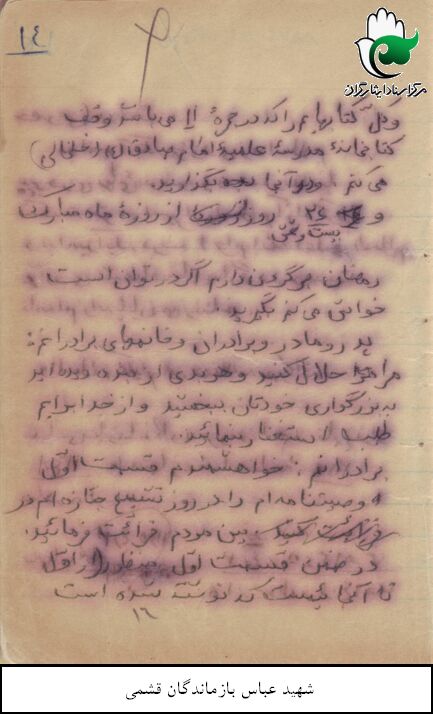 مرکز اسناد ایثارگران
۱۴
و کل کتابهایم را که در حجرهٔ ۱۱ می باشد وقف
کتابخانهٔ مدرسهٔ علمیهٔ امام صادق (ع)
می کنم و در آنجا بگذارید.
و ۲۶ روز از روزهٔ ماه مبارک
بیست و شش
رمضان بر گردن دارم اگر در توان است
خواهش می کنم بگیرید.
پدر و مادر و برادران و خانمهای برادرانم:
مرا حلال کنید و هر بدی از بنده دیده اید
به بزرگواری خودتان ببخشید و از خدا برایم
طلب استغفار بنمائید.
برادرانم: خواهشمندم قسمت اول
وصیتنامه ام را در روز تشییع جنازه ام در
بین مردم قرائت فرمائید.
در ضمن قسمت اول منظور از اول
تا آنجائیست که نوشته شده است
۱۶
شهید عباس بازماندگان قشمی